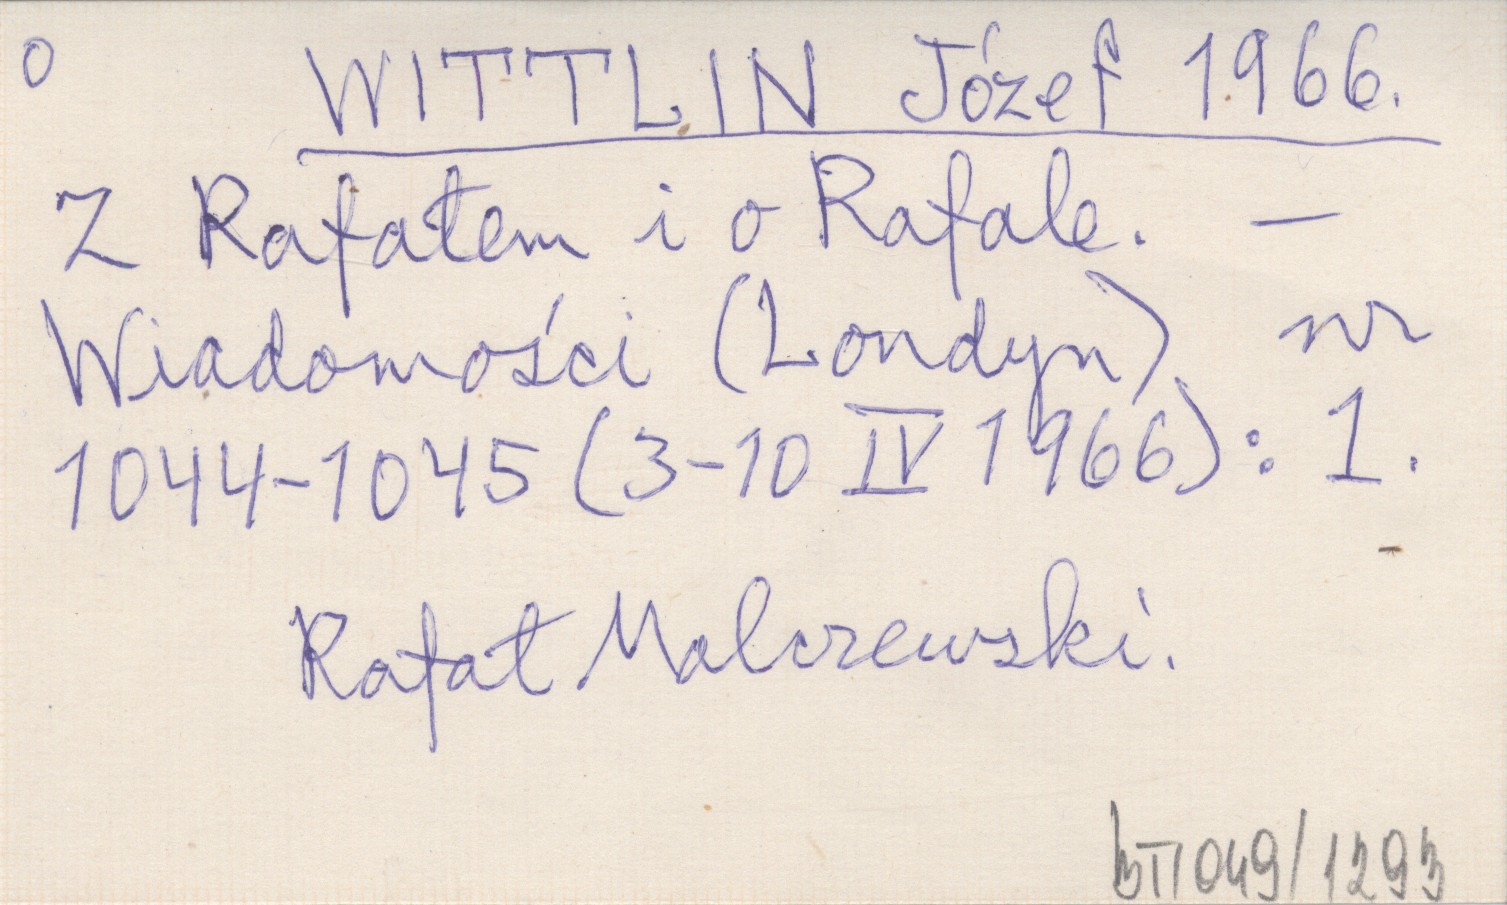 o WITTLIN Józef 1966.
Z Rafałem i o Rafale. —
Wiadomości (Londyn) nr
1044-1045 (3-10 IV 1966): 1.
Rafał Malczewski.
049/1293